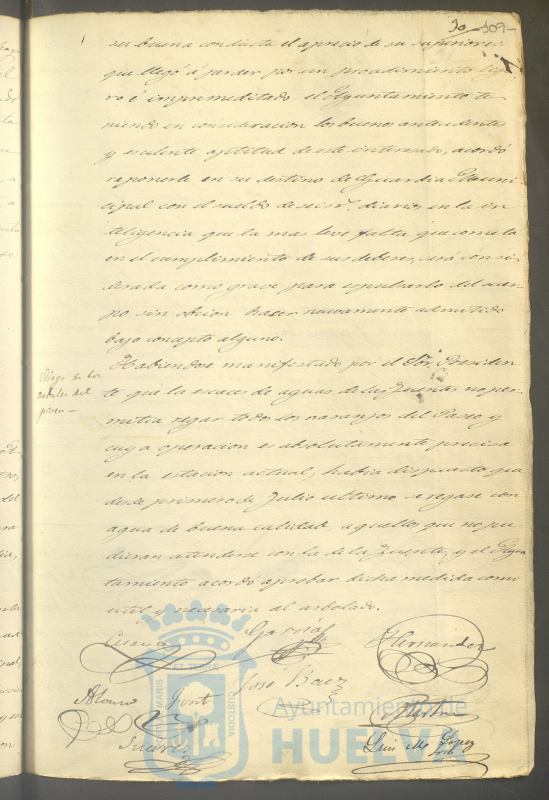 30 109-
su buena conducta el aprecio de sus superiores
que llegó á perder por un procedimiento lije
ro é impremeditado el Ayuntamiento te
niendo en consideracion los buenos antecedentes
y escelente aptitud de este interesado, acordó
reponerle en su destino de Guardia Muni
cipal con el sueldo de seis rs. diarios en la in
teligencia que la mas leve falta que cometa
en el cumplimiento de sus deberes, será consi
derada como grave para espulsarlo del cuer
po sin obcion hacer nuevamente admitido
bajo concepto alguno.
Riego de los
arboles del
paseo—
Habiendose manifestado por el Sor. Presiden
te que la escases de aguas de las fuentes no per
mitia regar todos los naranjos del Paseo y
cuya operacion es absolutamente precisa
en la estacion actual, habia dispuesto que
desde primero de Julio ultimo se regase con
agua de buena calidad aquellos que no pu
dieran atenderse con la de la fuente, y el Ayun
tamiento acordó aprobar dicha medida como
util y necesaria al arbolado.
Garcia
Hernandez
Alonso
José Baez
Suarez
Luis Mª Lopez
PORTUS MARIS ET TERRÆ CUSTODIA
Ayuntamiento de
HUELVA